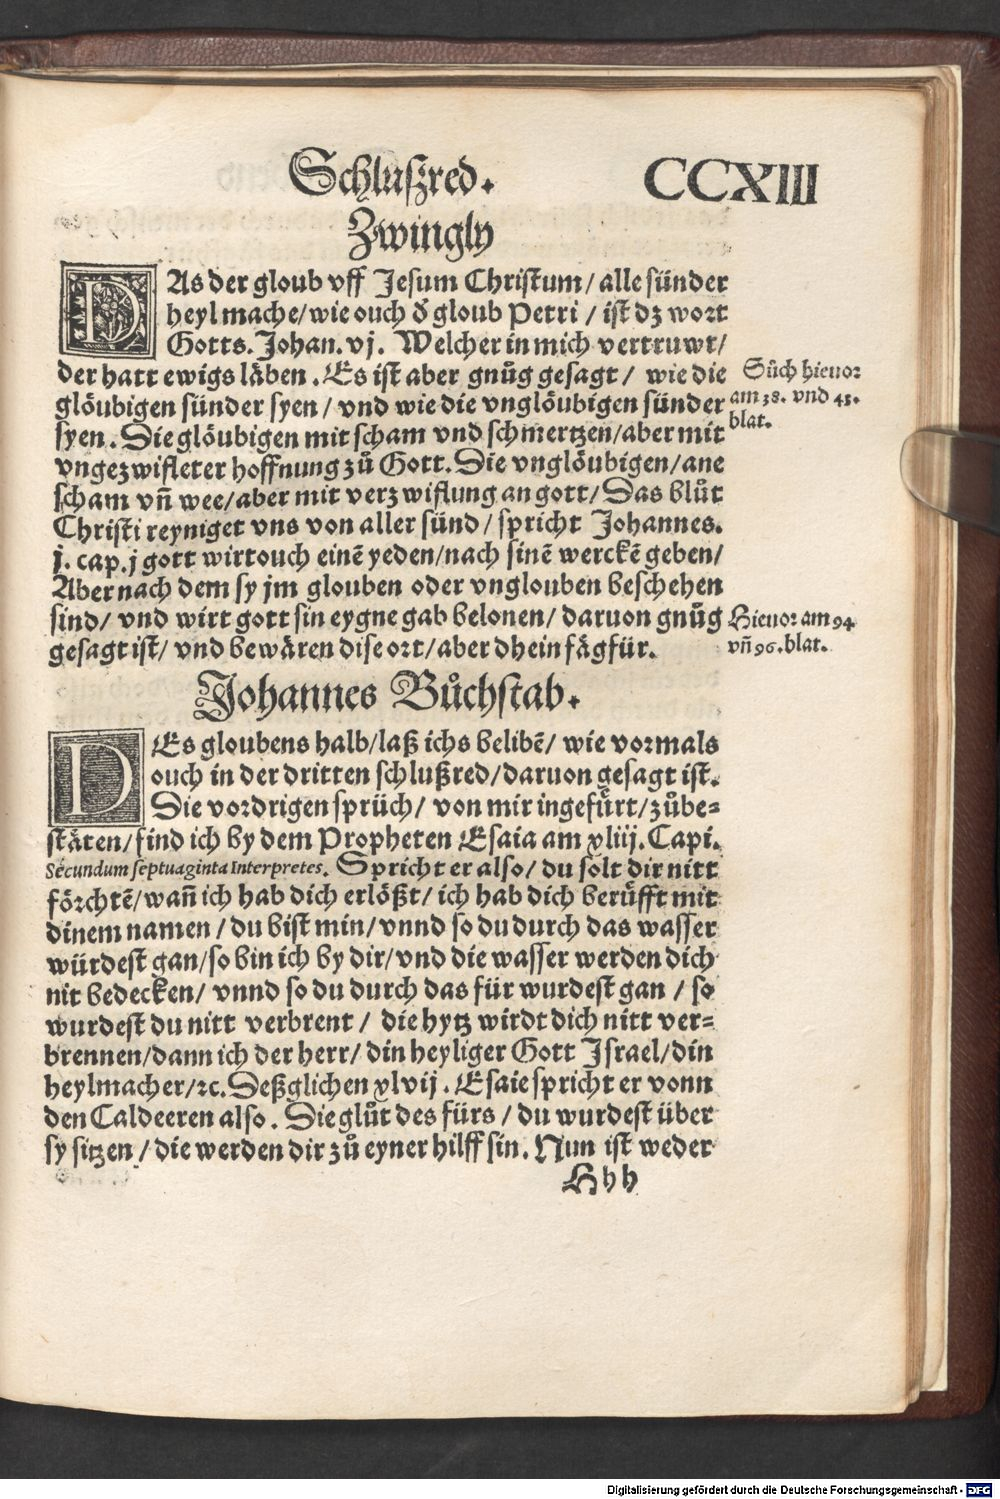 Schlußred. CCXIII
Zwingly
DAs der gloub vff Jesum Christum/ alle sünder
heyl mache/ wie ouch d̕ gloub Petri / ist dz wort
Gotts. Johan. vj. Welcher in mich vertruwt/
der hatt ewigs läben. Es ist aber gnůg gesagt/ wie die
glöubigen sünder syen/ vnd wie die vnglöubigen sünder
syen. Die glöubigen mit scham vnd schmertzen/ aber mit
vngezwifleter hoffnung zů Gott. Die vnglöubigen/ ane
scham vñ wee/ aber mit verzwiflung an gott/ Das blůt
Christi reyniget vns von aller sünd/ spricht Johannes.
j. cap. j gott wirt ouch einẽ yeden/ nach sinẽ werckẽ geben/
Aber nach dem sy jm glouben oder vnglouben beschehen
sind/ vnd wirt gott sin eygne gab belonen/ daruon gnůg
gesagt ist/ vnd bewären dise ort/ aber dhein fägfür.
Sůch hieuor
am 38. vnd 45.
blat.
Hieuor am 94
vñ 96. blat.
Johannes Bůchstab.
DEs gloubens halb/ laß ichs belibẽ/ wie vormals
ouch in der dritten schlußred/ daruon gesagt ist.
Die vordrigen sprüch/ von mir ingefürt/ zůbe-
stäten/ find ich by dem Propheten Esaia am xliij. Capi.
Secundum septuaginta Interpretes. Spricht er also/ du solt dir nitt
förchtẽ/ wañ ich hab dich erlößt/ ich hab dich berüfft mit
dinem namen / du bist min/ vnnd so du durch das wasser
würdest gan/ so bin ich by dir/ vnd die wasser werden dich
nit bedecken/ vnnd so du durch das für wurdest gan / so
wurdest du nitt verbrent / die hytz wirdt dich nitt ver-
brennen/ dann ich der herr/ din heyliger Gott Israel/ din
heylmacher/ ꝛc. Deßglichen xlvij. Esaie spricht er vonn
den Caldeeren also. Die glůt des fürs / du wurdest über
sy sitzen / die werden dir zů eyner hilff sin. Nun ist weder
Hhh
Digitalisierung gefördert durch die Deutsche Forschungsgemeinschaft - DFG